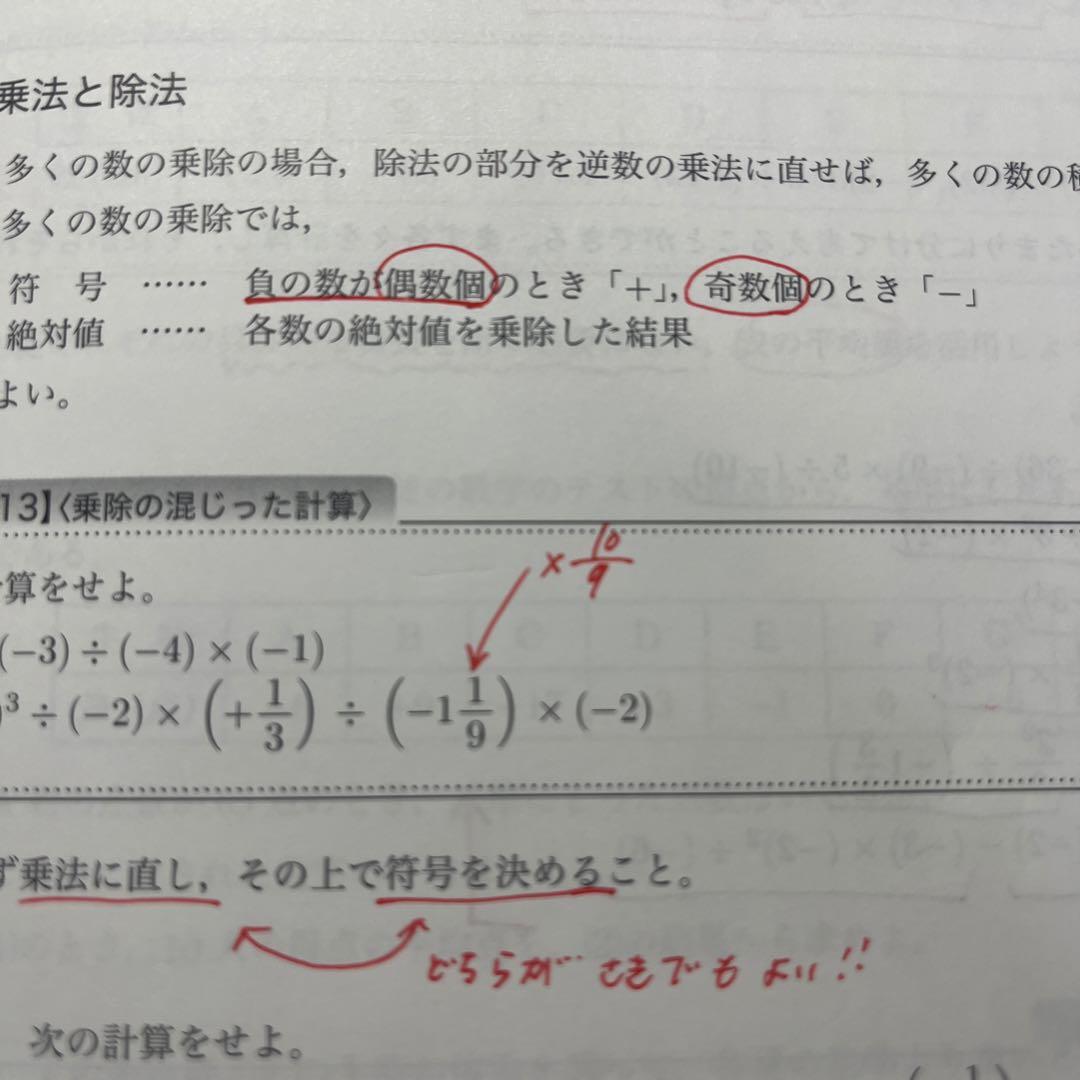 乗法と除法
多くの数の乗除の場合，除法の部分を逆数の乗法に直せば，多くの数の
多くの数の乗除では，
符　号 …… 負の数が偶数個のとき「＋」，奇数個のとき「－」
絶対値 …… 各数の絶対値を乗除した結果
よい。
13】〈乗除の混じった計算〉
× 10/9
算をせよ。
(−3)÷(−4)×(−1)
)³÷(−2)×(+1/3)÷(−1 1/9)×(−2)
ず乗法に直し，その上で符号を決めること。
どちらが さきでも よい!!
次の計算をせよ。